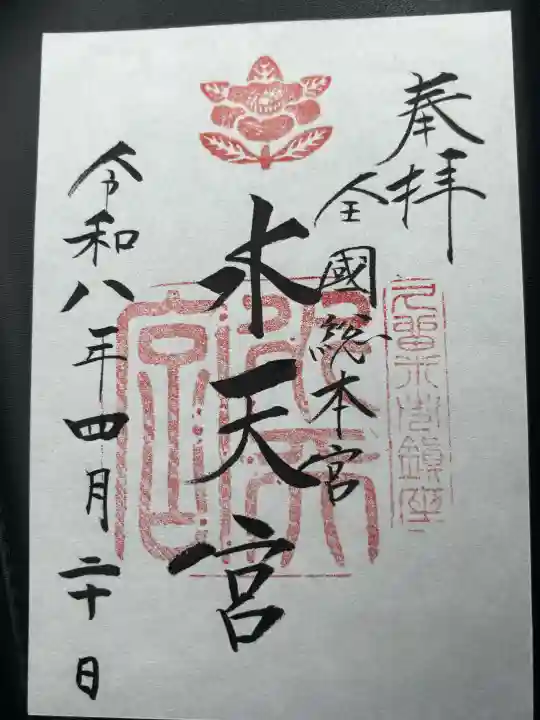 奉拝
久留米市鎮座
全國総本宮
水天宮
水天宮
令和八年四月二十日